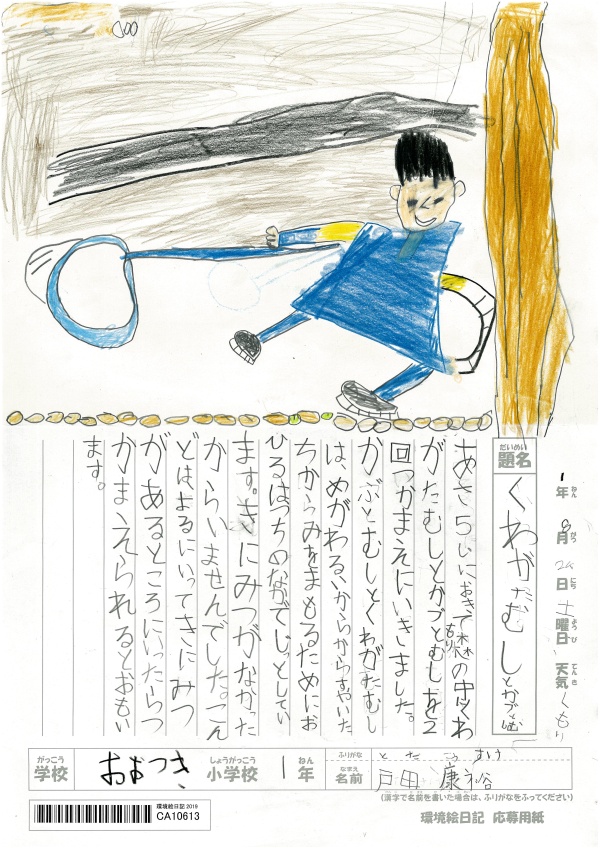 1年8月24日土曜日 天気くもり
ねん がつ にち ようび てんき
だいめい
題名
くわがたむしとかぶとむし
あさ5じにおきて森の中くわ
もり
がたむしとカブとむしを2
回つかまえにいきました。
かぶとむしとくわがたむし
は、めがわるいからからすやいた
ちからみをまもるためにお
ひるはつちのなかでじっとしてい
ます。きにみつがなかった
からいませんでした。こん
どはよるにいってきにみつ
があるところにいったらつ
かまえられるとおもい
ます。
がっこう しょうがっこう ねん
学校 おおつき 小学校 1年
ふりがな とだ こうすけ
なまえ
名前 戸田 康裕
(漢字で名前を書いた場合は、ふりがなをふってください)
環境絵日記 2019
CA10613
環境絵日記 応募用紙